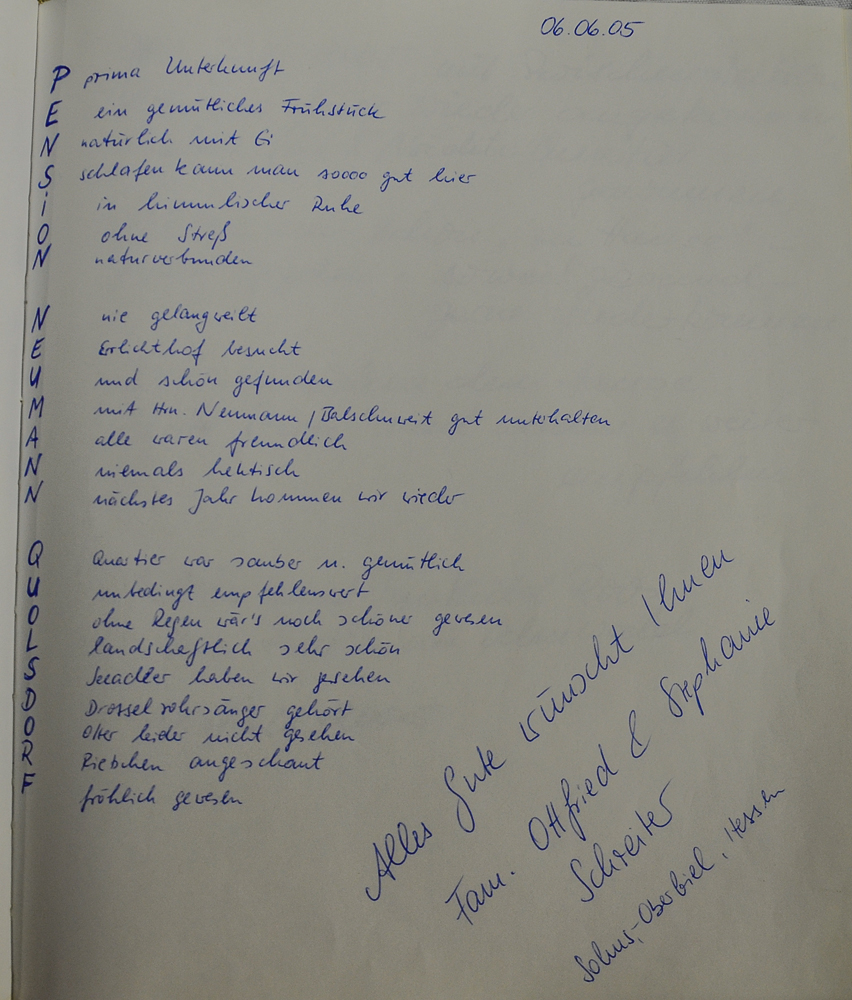 06.06.05
P prima Unterkunft
E ein gemütliches Frühstück
N natürlich mit Ei
S schlafen kann man soooo gut hier
i in himmlischer Ruhe
O ohne Streß
N naturverbunden
N nie gelangweilt
E Erlichthof besucht
U und schön gefunden
M mit Hrn. Neumann / Balschuweit gut unterhalten
A alle waren freundlich
N niemals hektisch
N nächstes Jahr kommen wir wieder
Q Quartier war sauber u. gemütlich
U unbedingt empfehlenswert
O ohne Regen wär's noch schöner gewesen
L landschaftlich sehr schön
S Seeadler haben wir gesehen
D Drosselrohrsänger gehört
O Otter leider nicht gesehen
R Rietschen angeschaut
F fröhlich gewesen
Alles Gute wünscht Ihnen
Fam. Ottfried & Stephanie
Schreiter
Solms-Oberbiel, Hessen